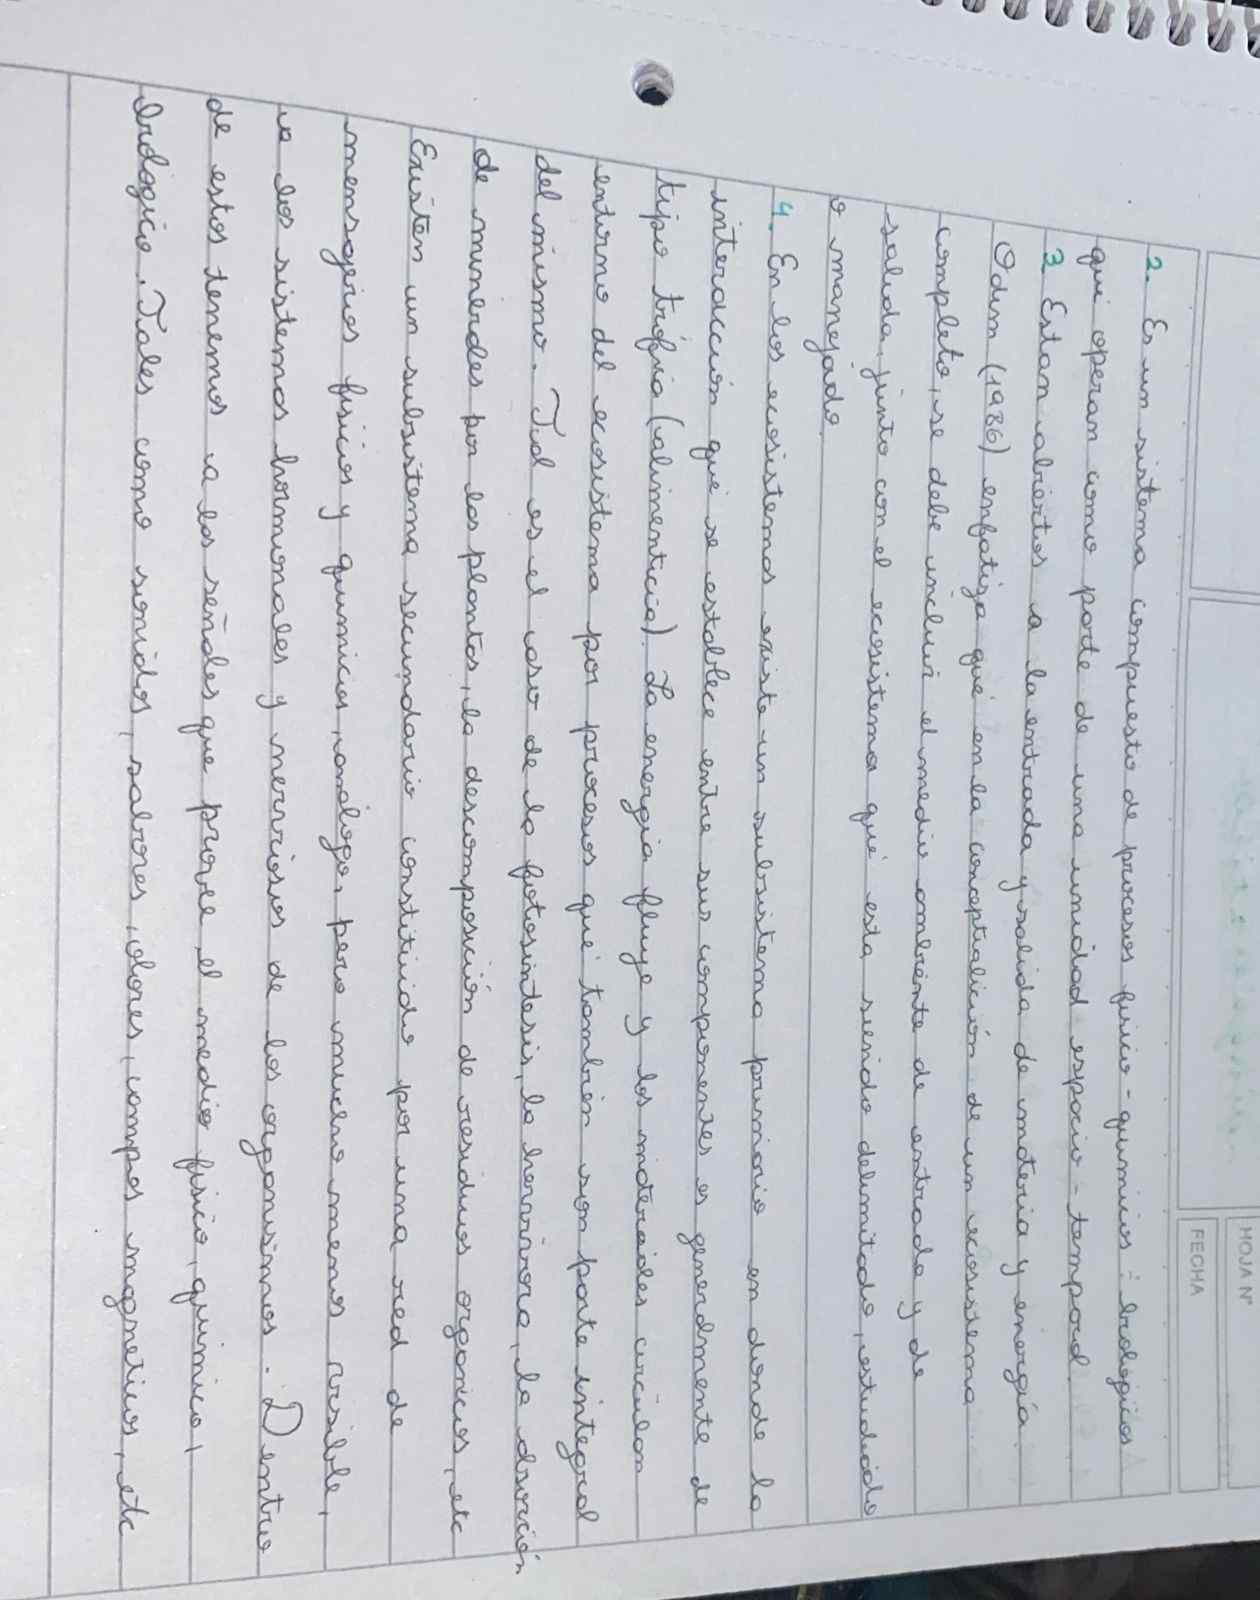 HOJA N°
FECHA
2. Es un sistema compuesto de procesos fisico-quimicos: biologicos
que operan como parte de una unidad espacio-temporal.
3. Estan abiertos a la entrada y salida de materia y energía.
Odum (1986) enfatiza que en la conceptualición de un ecosistema
completo, se debe incluir el medio ambiente de entrada y de
salida, junto con el ecosistema que esta siendo delimitado, estudiado
o manejado.
4. En los ecosistemas existe un subsistema primario en donde la
interacción que se establece entre sus componentes es generalmente de
tipo trófica (alimenticia). La energia fluye y los materiales circulan
entorno del ecosistema por procesos que tambien son parte integral
del mismo. Tal es el caso de la fotosintesis, la herviroro, la absorción
de minerales por las plantas, la descomposición de residuos organicos, etc
Existen un subsistema secundario constituido por una red de
mensajeros fisicos y quimicos, análogo, pero mucho menos visible,
a los sistemas hormonales y nerviosos de los organismos. Dentro
de estos tenemos a las señales que provee el medio fisico, quimico,
biologico. Tales como sonidos, sabores, olores, campos magneticos, etc